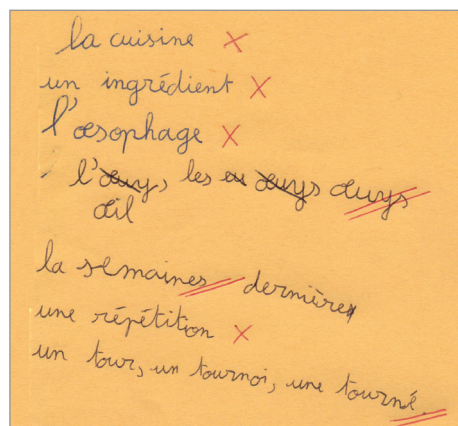 la cuisine
un ingrédient
l'œsophage
l'œuys, les eu œuys œuys
œil
la semaines dernières
une répétition
un tour, un tournoi, une tourné